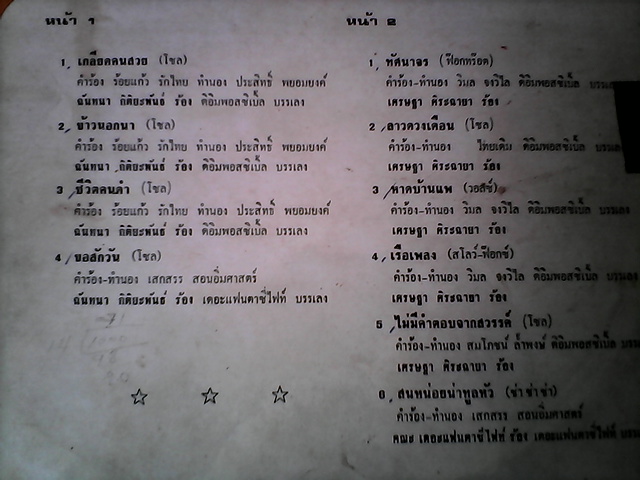 หน้า 1
1, เกลียดคนสวย (โซล)
คำร้อง ร้อยแก้ว รักไทย ทำนอง ประสิทธิ์ พยอมยงค์
ฉันทนา กิติยะพันธ์ ร้อง ดิอิมพอสซิเบิ้ล บรรเลง
2, ข้าวนอกนา (โซล)
คำร้อง ร้อยแก้ว รักไทย ทำนอง ประสิทธิ์ พยอมยงค์
ฉันทนา กิติยะพันธ์ ร้อง ดิอิมพอสซิเบิ้ล บรรเลง
3 ชีวิตคนดำ (โซล)
คำร้อง ร้อยแก้ว รักไทย ทำนอง ประสิทธิ์ พยอมยงค์
ฉันทนา กิติยะพันธ์ ร้อง ดิอิมพอสซิเบิ้ล บรรเลง
4 ขอสักวัน (โซล)
คำร้อง-ทำนอง เสกสรร สอนอิ่มศาสตร์
ฉันทนา กิติยะพันธ์ ร้อง เดอะแฟนตาซี่ไฟท์ บรรเลง
หน้า 2
1, ทัศนาจร (ฟ๊อกทร๊อต)
คำร้อง-ทำนอง วิมล จงวิไล ดิอิมพอสซิเบิ้ล บรรเลง
เศรษฐา ศิระฉายา ร้อง
2 ลาวดวงเดือน (โซล)
คำร้อง-ทำนอง ไทยเดิม ดิอิมพอสซิเบิ้ล บรรเล
เศรษฐา ศิระฉายา ร้อง
3 หาดบ้านแพ (วอลซ์)
คำร้อง-ทำนอง วิมล จงวิไล ดิอิมพอสซิเบิ้ล บรรเล
เศรษฐา ศิระฉายา ร้อง
4, เรือเพลง (สโลว์-ฟ๊อกซ์)
คำร้อง-ทำนอง วิมล จงวิไล ดิอิมพอสซิเบิ้ล บรรเล
เศรษฐา ศิระฉายา ร้อง
5 ไม่มีคำตอบจากสวรรค์ (โซล)
คำร้อง-ทำนอง สมโภชน์ ล้ำพงษ์ ดิอิมพอสซิเบิ้ล บรร
เศรษฐา ศิระฉายา ร้อง
6 สนหน่อยน่าทูลหัว (ช่า ช่า ช่า)
คำร้อง-ทำนอง เสกสรร สอนอิ่มศาสตร์
คณะ เดอะแฟนตาซี่ไฟท์ ร้อง เดอะแฟนตาซี่ไฟท์ บรร